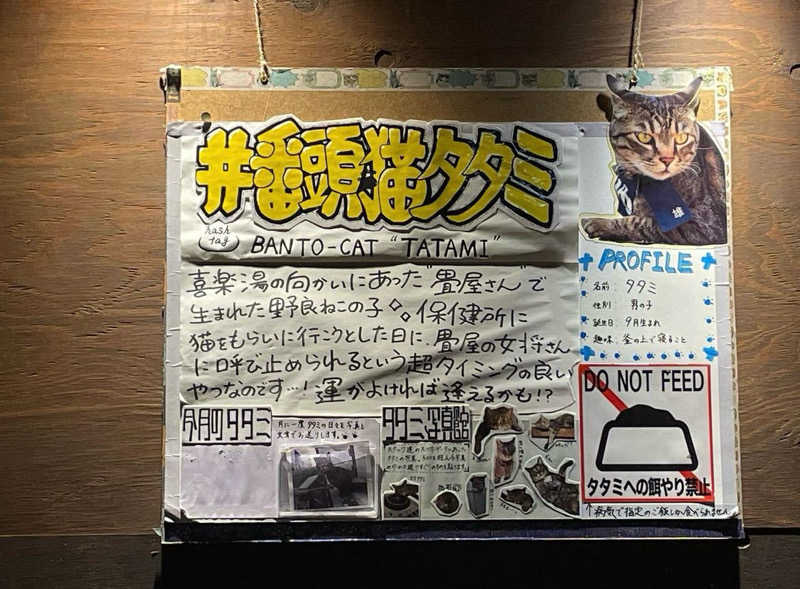 #番頭猫タタミ
hash tag
BANTO-CAT "TATAMI"
喜楽湯の向かいにあった"畳屋さん"で
生まれた野良ねこの子。保健所に
猫をもらいに行こうとした日に、畳屋の女将さん
に呼び止められるという超タイミングの良い
やつなのです…!運がよければ逢えるかも!?
雄
PROFILE
名前:タタミ
性別:男の子
誕生日:9月生まれ
趣味:釜の上で寝ること
DO NOT FEED
タタミへの餌やり禁止
↑病気で指定のご飯しか食べられません
今月のタタミ
月に一度タタミの日々を写真と
文章でお送りします。
タタミ写真館